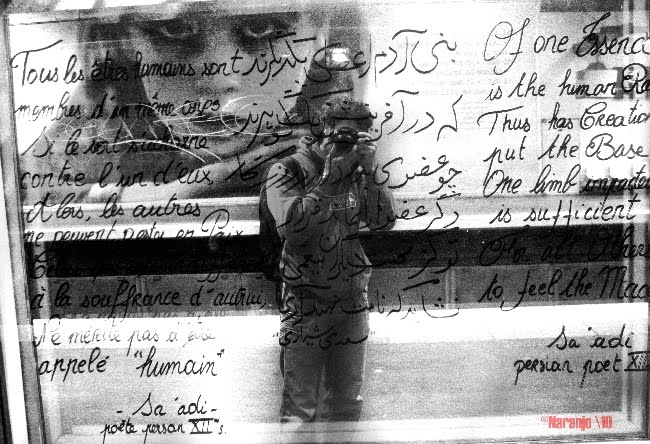 Tous les êtres humains sont
membres d'un même corps
Si le sort s'acharne
contre l'un d'eux
Alors, les autres
ne peuvent rester en Paix
à la souffrance d'autrui,
Ne mérite pas d'être
appelé "humain"
- Sa'adi -
poète persan XII°s.
بنی آدم اعضای یکدیگرند
که در آفرینش ز یک گوهرند
چو عضوی درد روزگار
دگر عضوها را قرار
تو کز محنت دیگران بی غمی
نشاید که نامت نهند آدمی
"سعدی شیرازی"
Of one Essenc
is the human Ra
Thus has Creation
put the Base
One limb impacted
is sufficient
For all Others
to feel the Mac
Sa'adi
persian poet XII
©Naranjo \10